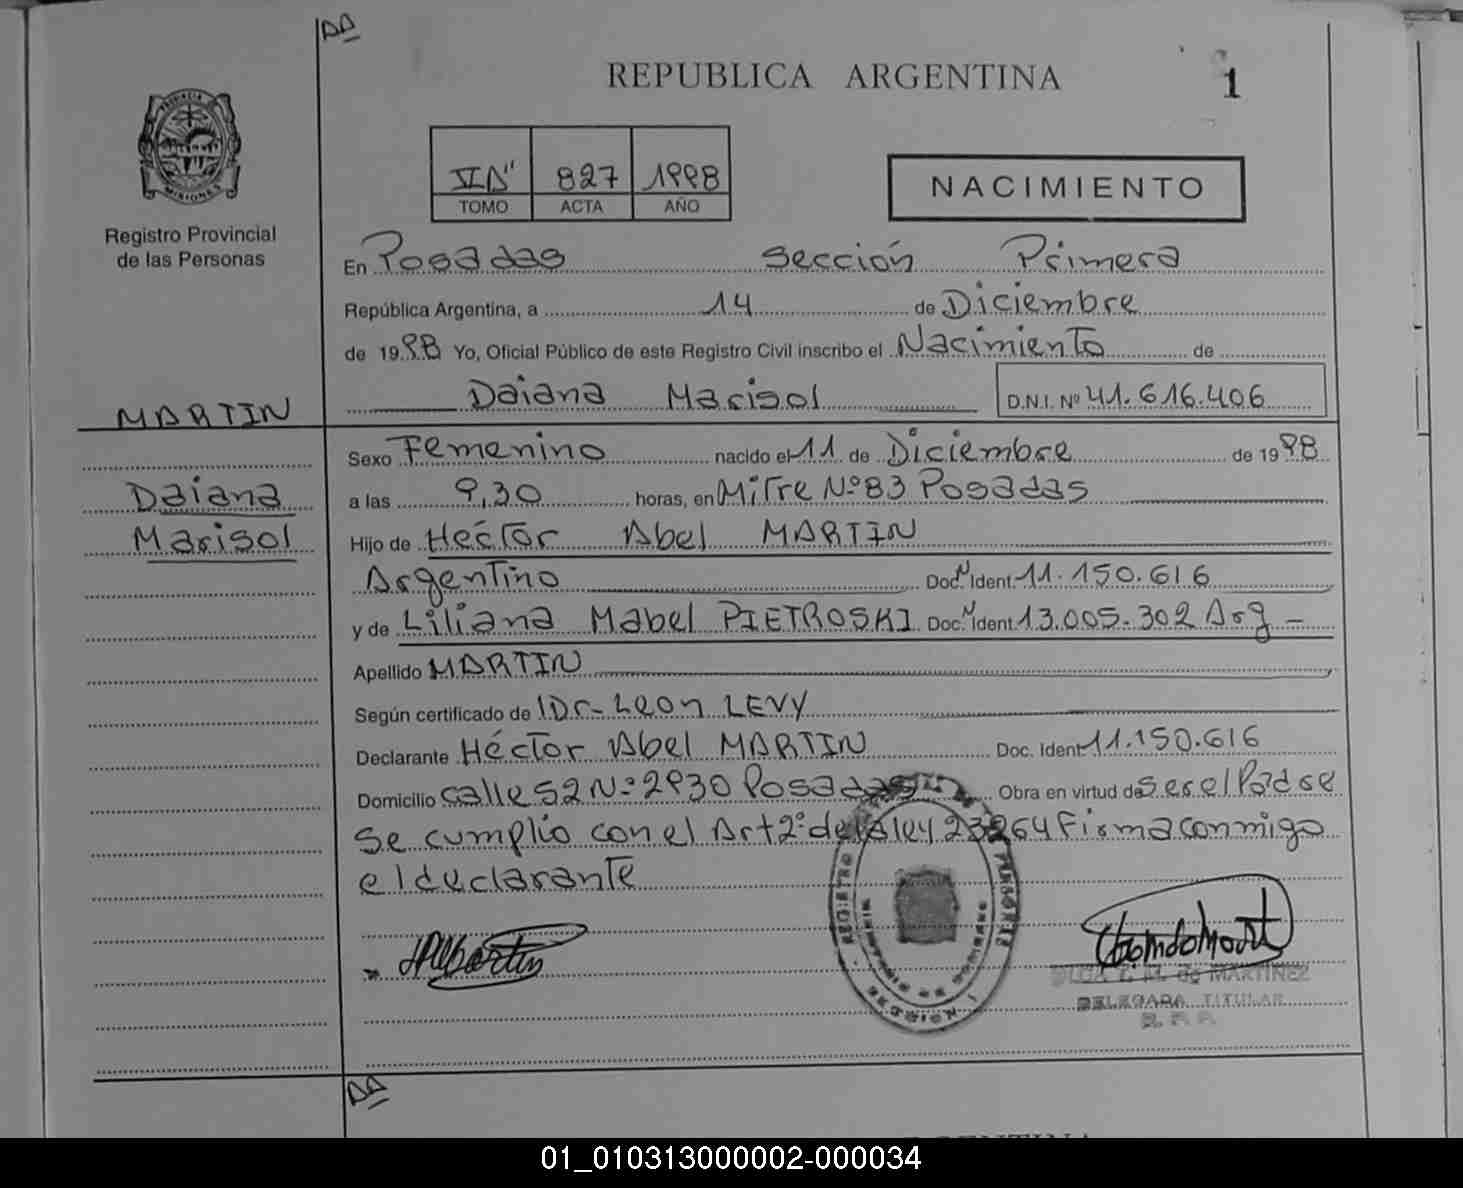 AA
REPUBLICA ARGENTINA
1
VI"A" 827 1998
TOMO ACTA AÑO
NACIMIENTO
PROVINCIA DE MISIONES
Registro Provincial
de las Personas
En Posadas sección Primera
República Argentina, a 14 de Diciembre
de 1998 Yo, Oficial Público de este Registro Civil inscribo el Nacimiento de
Daiana Marisol D.N.I. Nº 41.616.406
MARTIN
Daiana
Marisol
Sexo Femenino nacido el 11 de Diciembre de 1998
a las 9,30 horas, en Mitre Nº 83 Posadas
Hijo de Héctor Abel MARTIN
Argentino Doc. N Ident. 11.150.616
y de Liliana Mabel PIETROSKI Doc. N Ident. 13.005.302 Arg -
Apellido MARTIN
Según certificado de Dr- Leon LEVY
Declarante Héctor Abel MARTIN Doc. Ident. 11.150.616
Domicilio calle 52 Nº 2930 Posadas Obra en virtud de ser el Padre
Se cumplio con el Art 2º de la ley 23264 Firma conmigo
el declarante
DE MARTINEZ
DELEGADA TITULAR
R. P. P.
AA
01_010313000002-000034